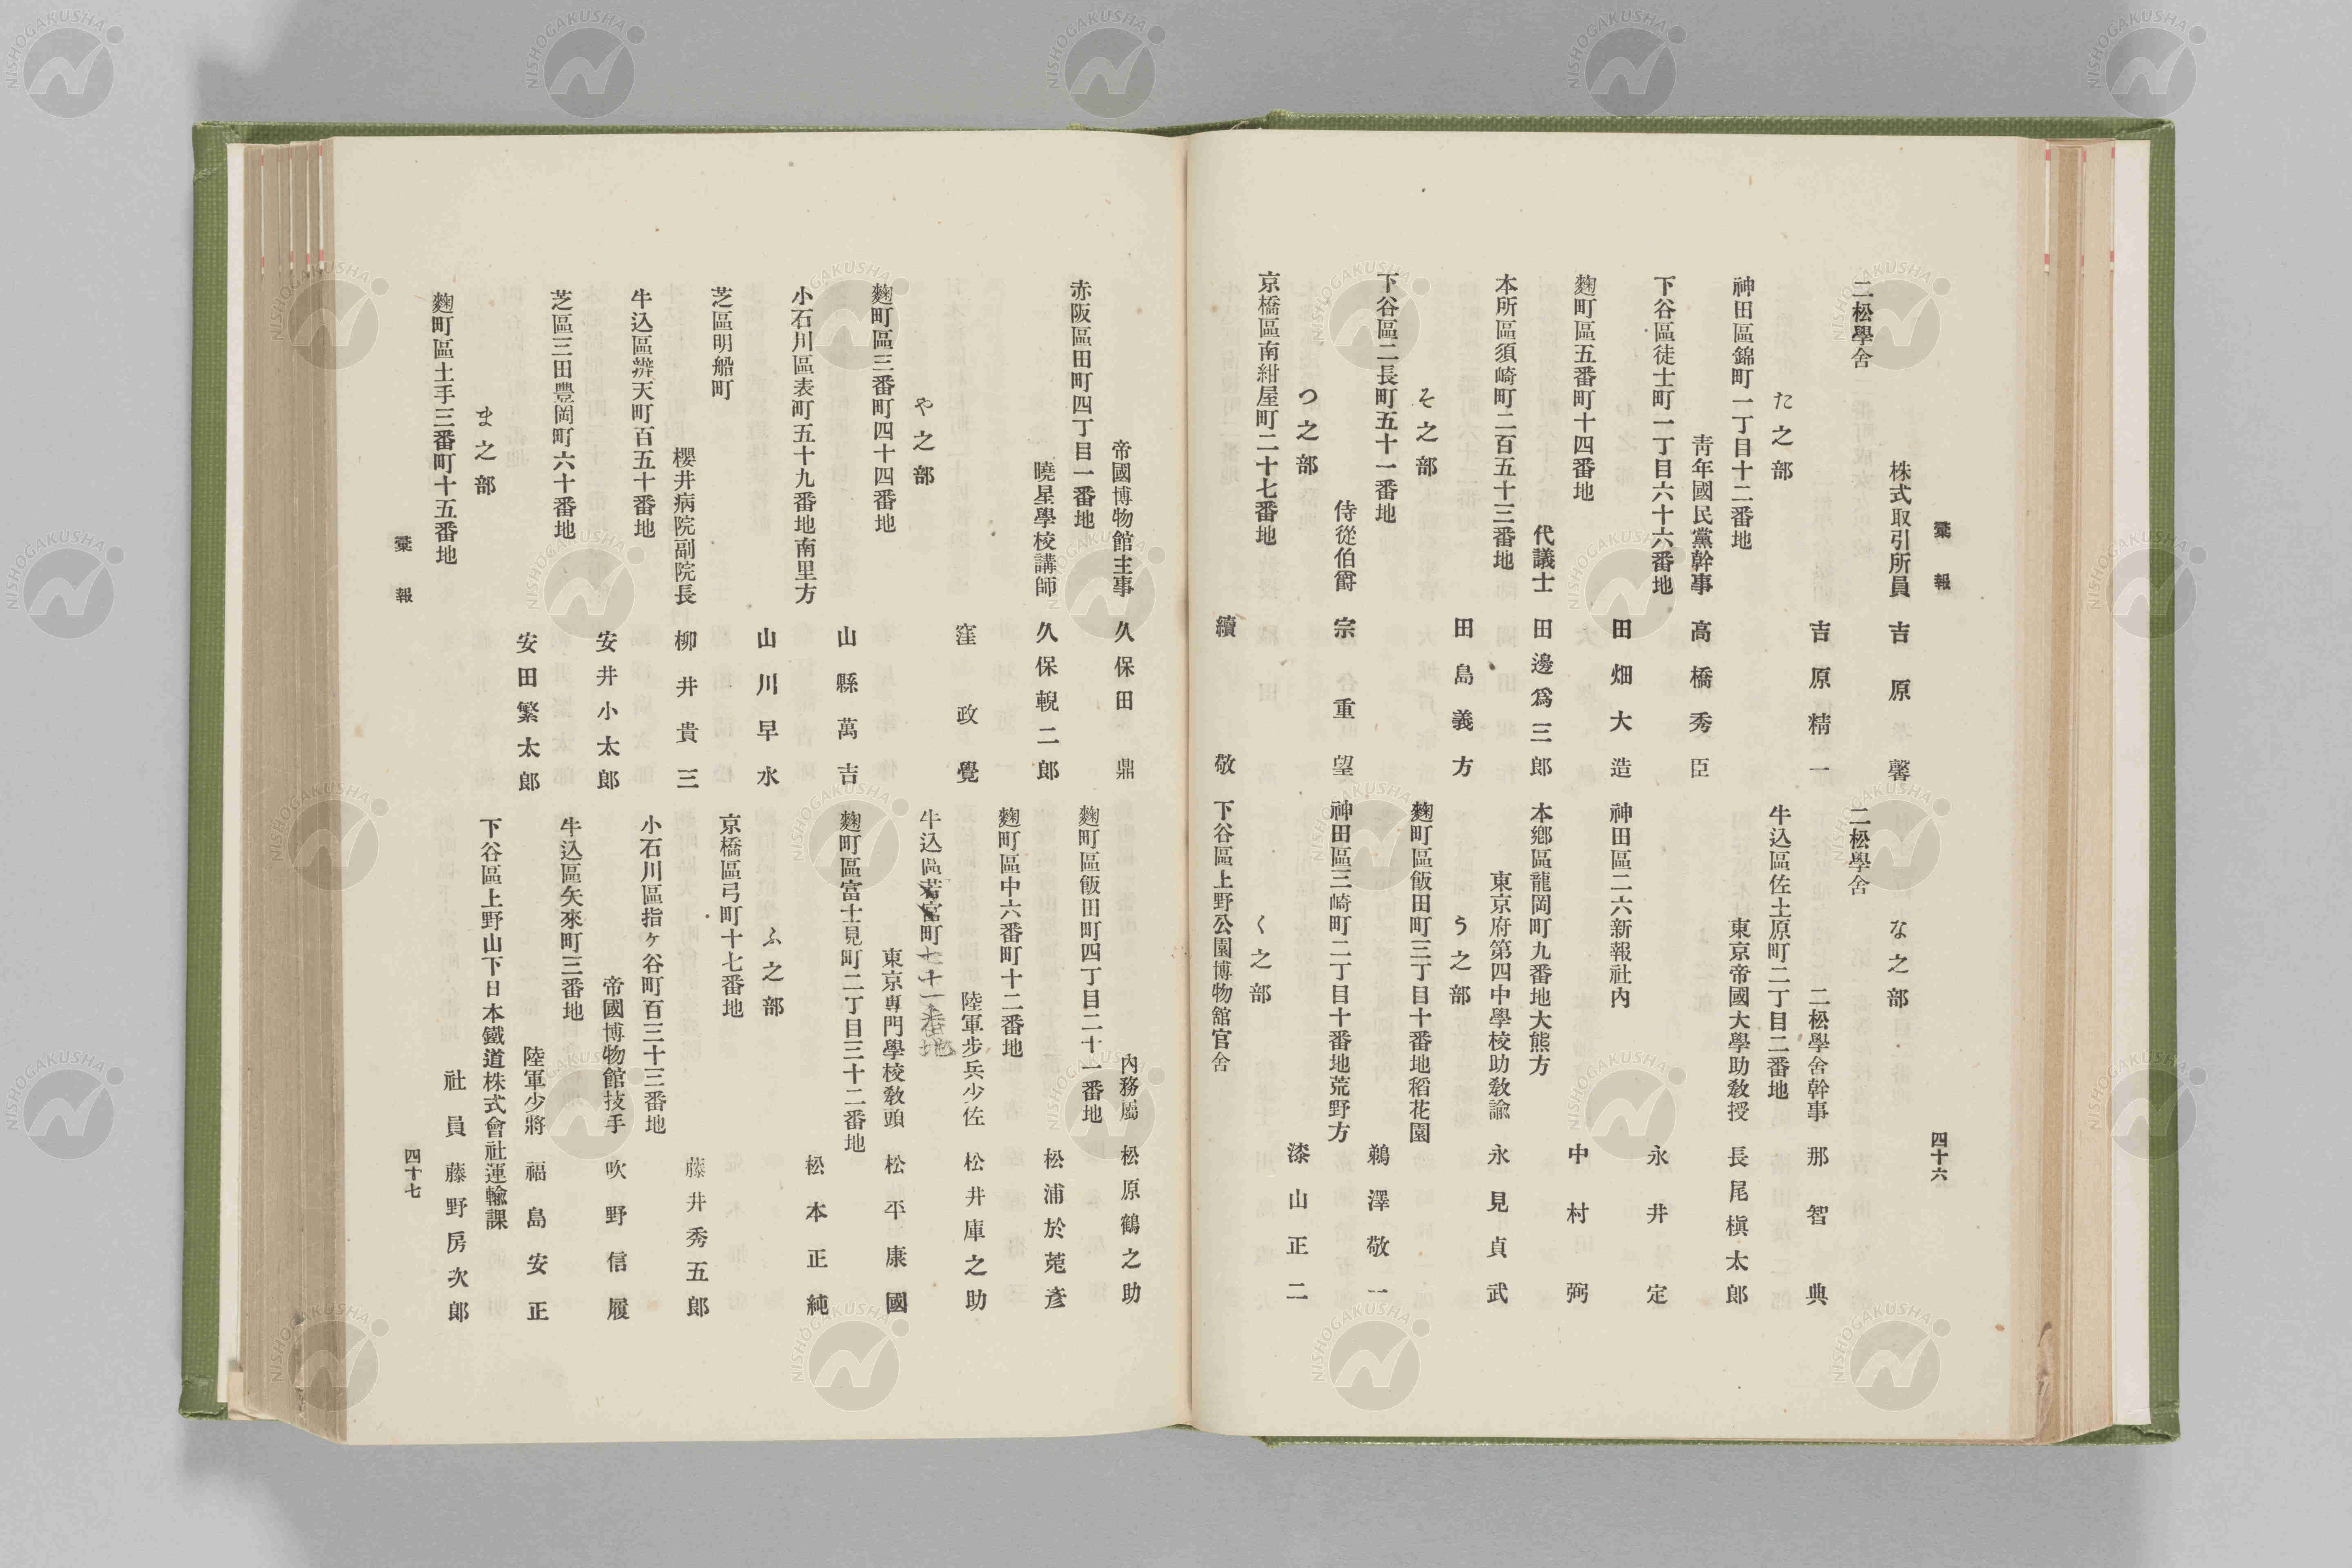 彙報
四十六
株式取引所員 吉原馨
二松學舍
吉原精一
た之部
神田區錦町一丁目十二番地
靑年國民黨幹事 高橋秀臣
下谷區徒士町一丁目六十六番地
田畑大造
麴町區五番町十四番地
代議士 田邊爲三郎
本所區須崎町二百五十三番地
田島義方
そ之部
下谷區二長町五十一番地
侍從伯爵 宗重望
つ之部
京橋區南紺屋町二十七番地
續敬
な之部
二松學舍
二松學舍幹事 那智典
牛込區佐土原町二丁目二番地
東京帝國大學助敎授 長尾槇太郎
永井定
神田區二六新報社內
中村弼
本鄕區龍岡町九番地大熊方
東京府第四中學校助敎諭 永見貞武
う之部
麴町區飯田町三丁目十番地稻花園
鵜澤敬一
神田區三崎町二丁目十番地荒野方
漆山正二
く之部
下谷區上野公園博物館官舍
帝國博物館主事 久保田鼎
赤阪區田町四丁目一番地
曉星學校講師 久保輗二郎
窪政覺
や之部
麴町區三番町四十四番地
山縣萬吉
小石川區表町五十九番地南里方
山川早水
芝區明船町
櫻井病院副院長 柳井貴三
牛込區辨天町百五十番地
安井小太郎
芝區三田豐岡町六十番地
安田繁太郎
ま之部
麴町區土手三番町十五番地
內務屬 松原鶴之助
麴町區飯田町四丁目二十一番地
松浦於菟彥
麴町區中六番町十二番地
陸軍步兵少佐 松井庫之助
牛込區若宮町七十一番地
東京專門學校敎頭 松平康國
麴町區富士見町二丁目三十二番地
松本正純
ふ之部
京橋區弓町十七番地
藤井秀五郎
小石川區指ヶ谷町百三十三番地
帝國博物館技手 吹野信履
牛込區矢來町三番地
陸軍少將 福島安正
下谷區上野山下日本鐵道株式會社運輸課
社員 藤野房次郎
彙報
四十七
NISHOGAKUSHA